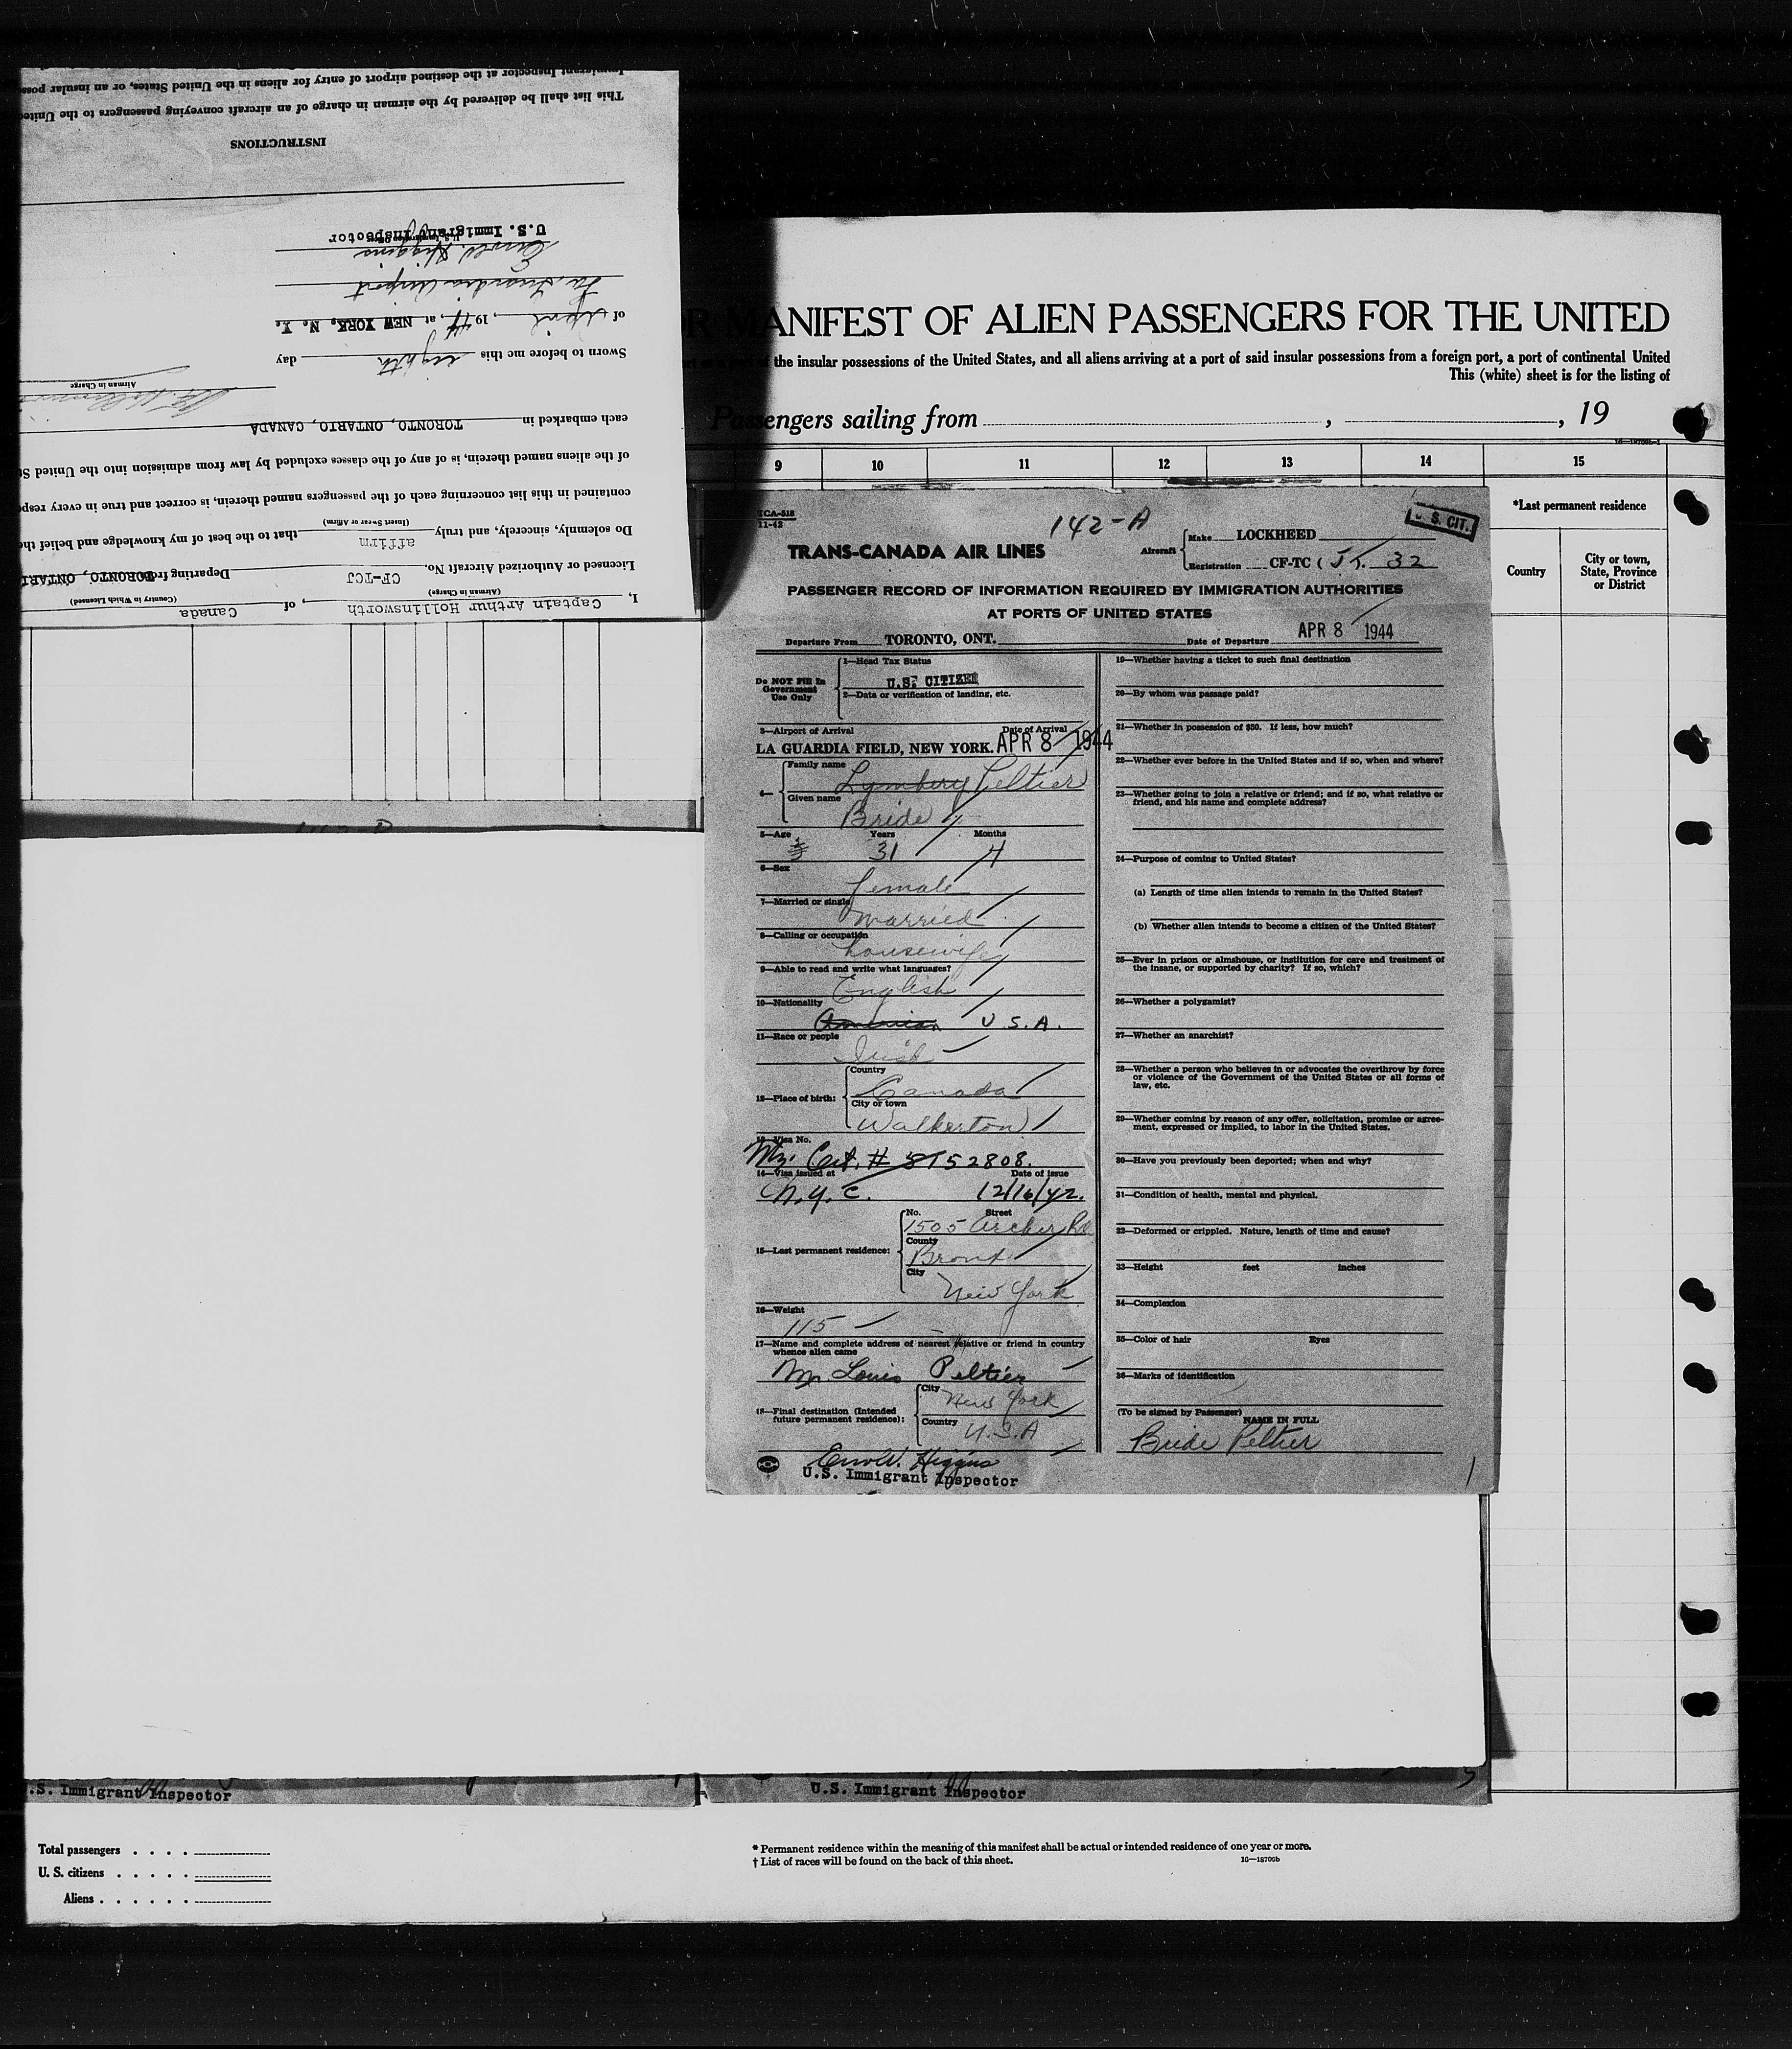 I, Captain Arthur Hollinsworth, of Canada
(Airman in Charge) (Country in Which Licensed)
Licensed or Authorized Aircraft No. CF-TCJ Departing from TORONTO, ONTARI
Do solemnly, sincerely, and truly affirm that to the best of my knowledge and belief the
(Insert Swear or Affirm)
contained in this list concerning each of the passengers named therein, is correct and true in every resp
of the aliens named therein, is of any of the classes excluded by law from admission into the United S
each embarked in TORONTO, ONTARIO, CANADA
Airman in Charge
Sworn to before me this eighth day
of April, 1944, at NEW YORK, N. Y.
La Guardia Airport
Higgins
U.S. Immigrant Inspector
INSTRUCTIONS
This list shall be delivered by the airman in charge of an aircraft conveying passengers to the United
Immigrant Inspector at the destined airport of entry for aliens in the United States, or an insular poss
MANIFEST OF ALIEN PASSENGERS FOR THE UNITED
the insular possessions of the United States, and all aliens arriving at a port of said insular possessions from a foreign port, a port of continental United
This (white) sheet is for the listing of
Passengers sailing from , , 19
9 10 11 12 13 14 15
*Last permanent residence
Country
City or town, State, Province or District
TCA-518
11-42
142-A
U. S. CIT.
TRANS-CANADA AIR LINES
Aircraft
Make LOCKHEED
Registration CF-TC ( J T. 32
PASSENGER RECORD OF INFORMATION REQUIRED BY IMMIGRATION AUTHORITIES
AT PORTS OF UNITED STATES
Departure From TORONTO, ONT. Date of Departure APR 8 1944
Do NOT Fill In Government Use Only
1—Head Tax Status
U.S. CITIZEN
2—Data or verification of landing, etc.
3—Airport of Arrival Date of Arrival
LA GUARDIA FIELD, NEW YORK. APR 8 1944
4— Family name
Lymbery Peltier
Given name
Bride
5—Age Years Months
31 4
6—Sex
female
7—Married or single
married
8—Calling or occupation
housewife
9—Able to read and write what languages?
English
10—Nationality
American U.S.A.
11—Race or people
Irish
12—Place of birth:
Country
Canada
City or town
Walkerton
13—Visa No.
Ntz. Cert. # 5752808.
14—Visa issued at Date of issue
N.Y.C. 12/16/42.
15—Last permanent residence:
No. Street
1505 Archer Rd
County
Bronx
City
New York
16—Weight
115
17—Name and complete address of nearest relative or friend in country
whence alien came
Mr. Louis Peltier
18—Final destination (Intended future permanent residence):
City
New York
Country
U.S.A
Errol W. Higgins
U.S. Immigrant Inspector
19—Whether having a ticket to such final destination
20—By whom was passage paid?
21—Whether in possession of $50. If less, how much?
22—Whether ever before in the United States and if so, when and where?
23—Whether going to join a relative or friend; and if so, what relative or
friend, and his name and complete address?
24—Purpose of coming to United States?
(a) Length of time alien intends to remain in the United States?
(b) Whether alien intends to become a citizen of the United States?
25—Ever in prison or almshouse, or institution for care and treatment of
the insane, or supported by charity? If so, which?
26—Whether a polygamist?
27—Whether an anarchist?
28—Whether a person who believes in or advocates the overthrow by force
or violence of the Government of the United States or all forms of
law, etc.
29—Whether coming by reason of any offer, solicitation, promise or agree-
ment, expressed or implied, to labor in the United States.
30—Have you previously been deported; when and why?
31—Condition of health, mental and physical.
32—Deformed or crippled. Nature, length of time and cause?
33—Height feet inches
34—Complexion
35—Color of hair Eyes
36—Marks of identification
(To be signed by Passenger)
NAME IN FULL
Bride Peltier
.S. Immigrant Inspector
U.S. Immigrant Inspector
Total passengers
U. S. citizens
Aliens
* Permanent residence within the meaning of this manifest shall be actual or intended residence of one year or more.
† List of races will be found on the back of this sheet.
16—18700b